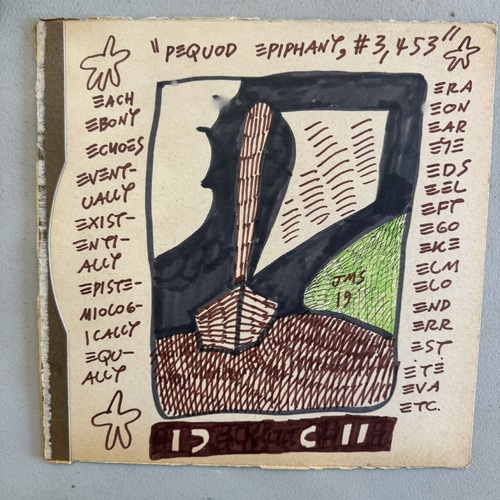 "PEQUOD EPIPHANY, #3,453"
EACH
EBONY
ECHOES
EVENT-
UALLY
EXIST-
ENTI-
ALLY
EPISTE-
MIOLOG-
ICALLY
EQU-
ALLY
ERA
EON
EAR
EYE
EDS
EEL
EFT
EGO
EKE
ELM
ELO
END
ERR
EST
ÉTÉ
EVA
ETC.
JMS
19